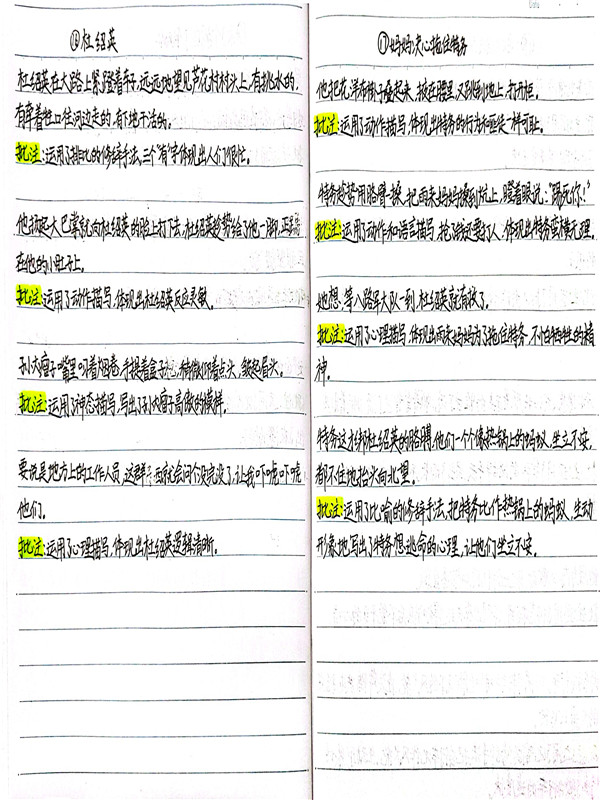 ⑩杜绍英
杜绍英在大路上紧蹬着车子,远远地望见芦花村村头上,有挑水的,
有牵着牲口往河边走的,有下地干活的。
批注:运用了排比的修辞手法,三个“有”字体现出人们很忙。
他抡起大巴掌就向杜绍英的脸上打下去,杜绍英趁势给了他一脚,正踢
在他的小肚子上。
批注:运用了动作描写,体现出杜绍英反应灵敏。
孙大瘤子嘴里叼着烟卷,手提着盒子,稍微点着点头,皱起眉头。
批注:运用了神态描写,写出了孙大瘤子高傲的模样。
要说是地方上的工作人员,这群东西就会问个没完没了,让我吓唬吓唬
他们。
批注:运用了心理描写,体现出杜绍英逻辑清晰。
⑪妈妈决心拖住特务
他把花洋布褂子叠起来,掖在腰里,又跳到地上,打开柜。
批注:运用了动作描写,体现出特务的行为和小偷一样可耻。
特务趁势用胳臂一操,把雨来妈妈操到炕上,瞪着眼说:“踢死你!”
批注:运用了动作和语言描写,抢了钱还要打人,体现出特务蛮横无理。
她想,等八路军大队一到,杜绍英就有救了。
批注:运用了心理描写,体现出雨来妈妈为了拖住特务,不怕牺牲的精
神。
特务这么绑杜绍英的胳膊,他们一个个像热锅上的蚂蚁,坐立不安,
都不住地抬头向北望。
批注:运用了比喻的修辞手法,把特务比作热锅上的蚂蚁,生动
形象地写出了特务想逃命的心理,让他们坐立不安。